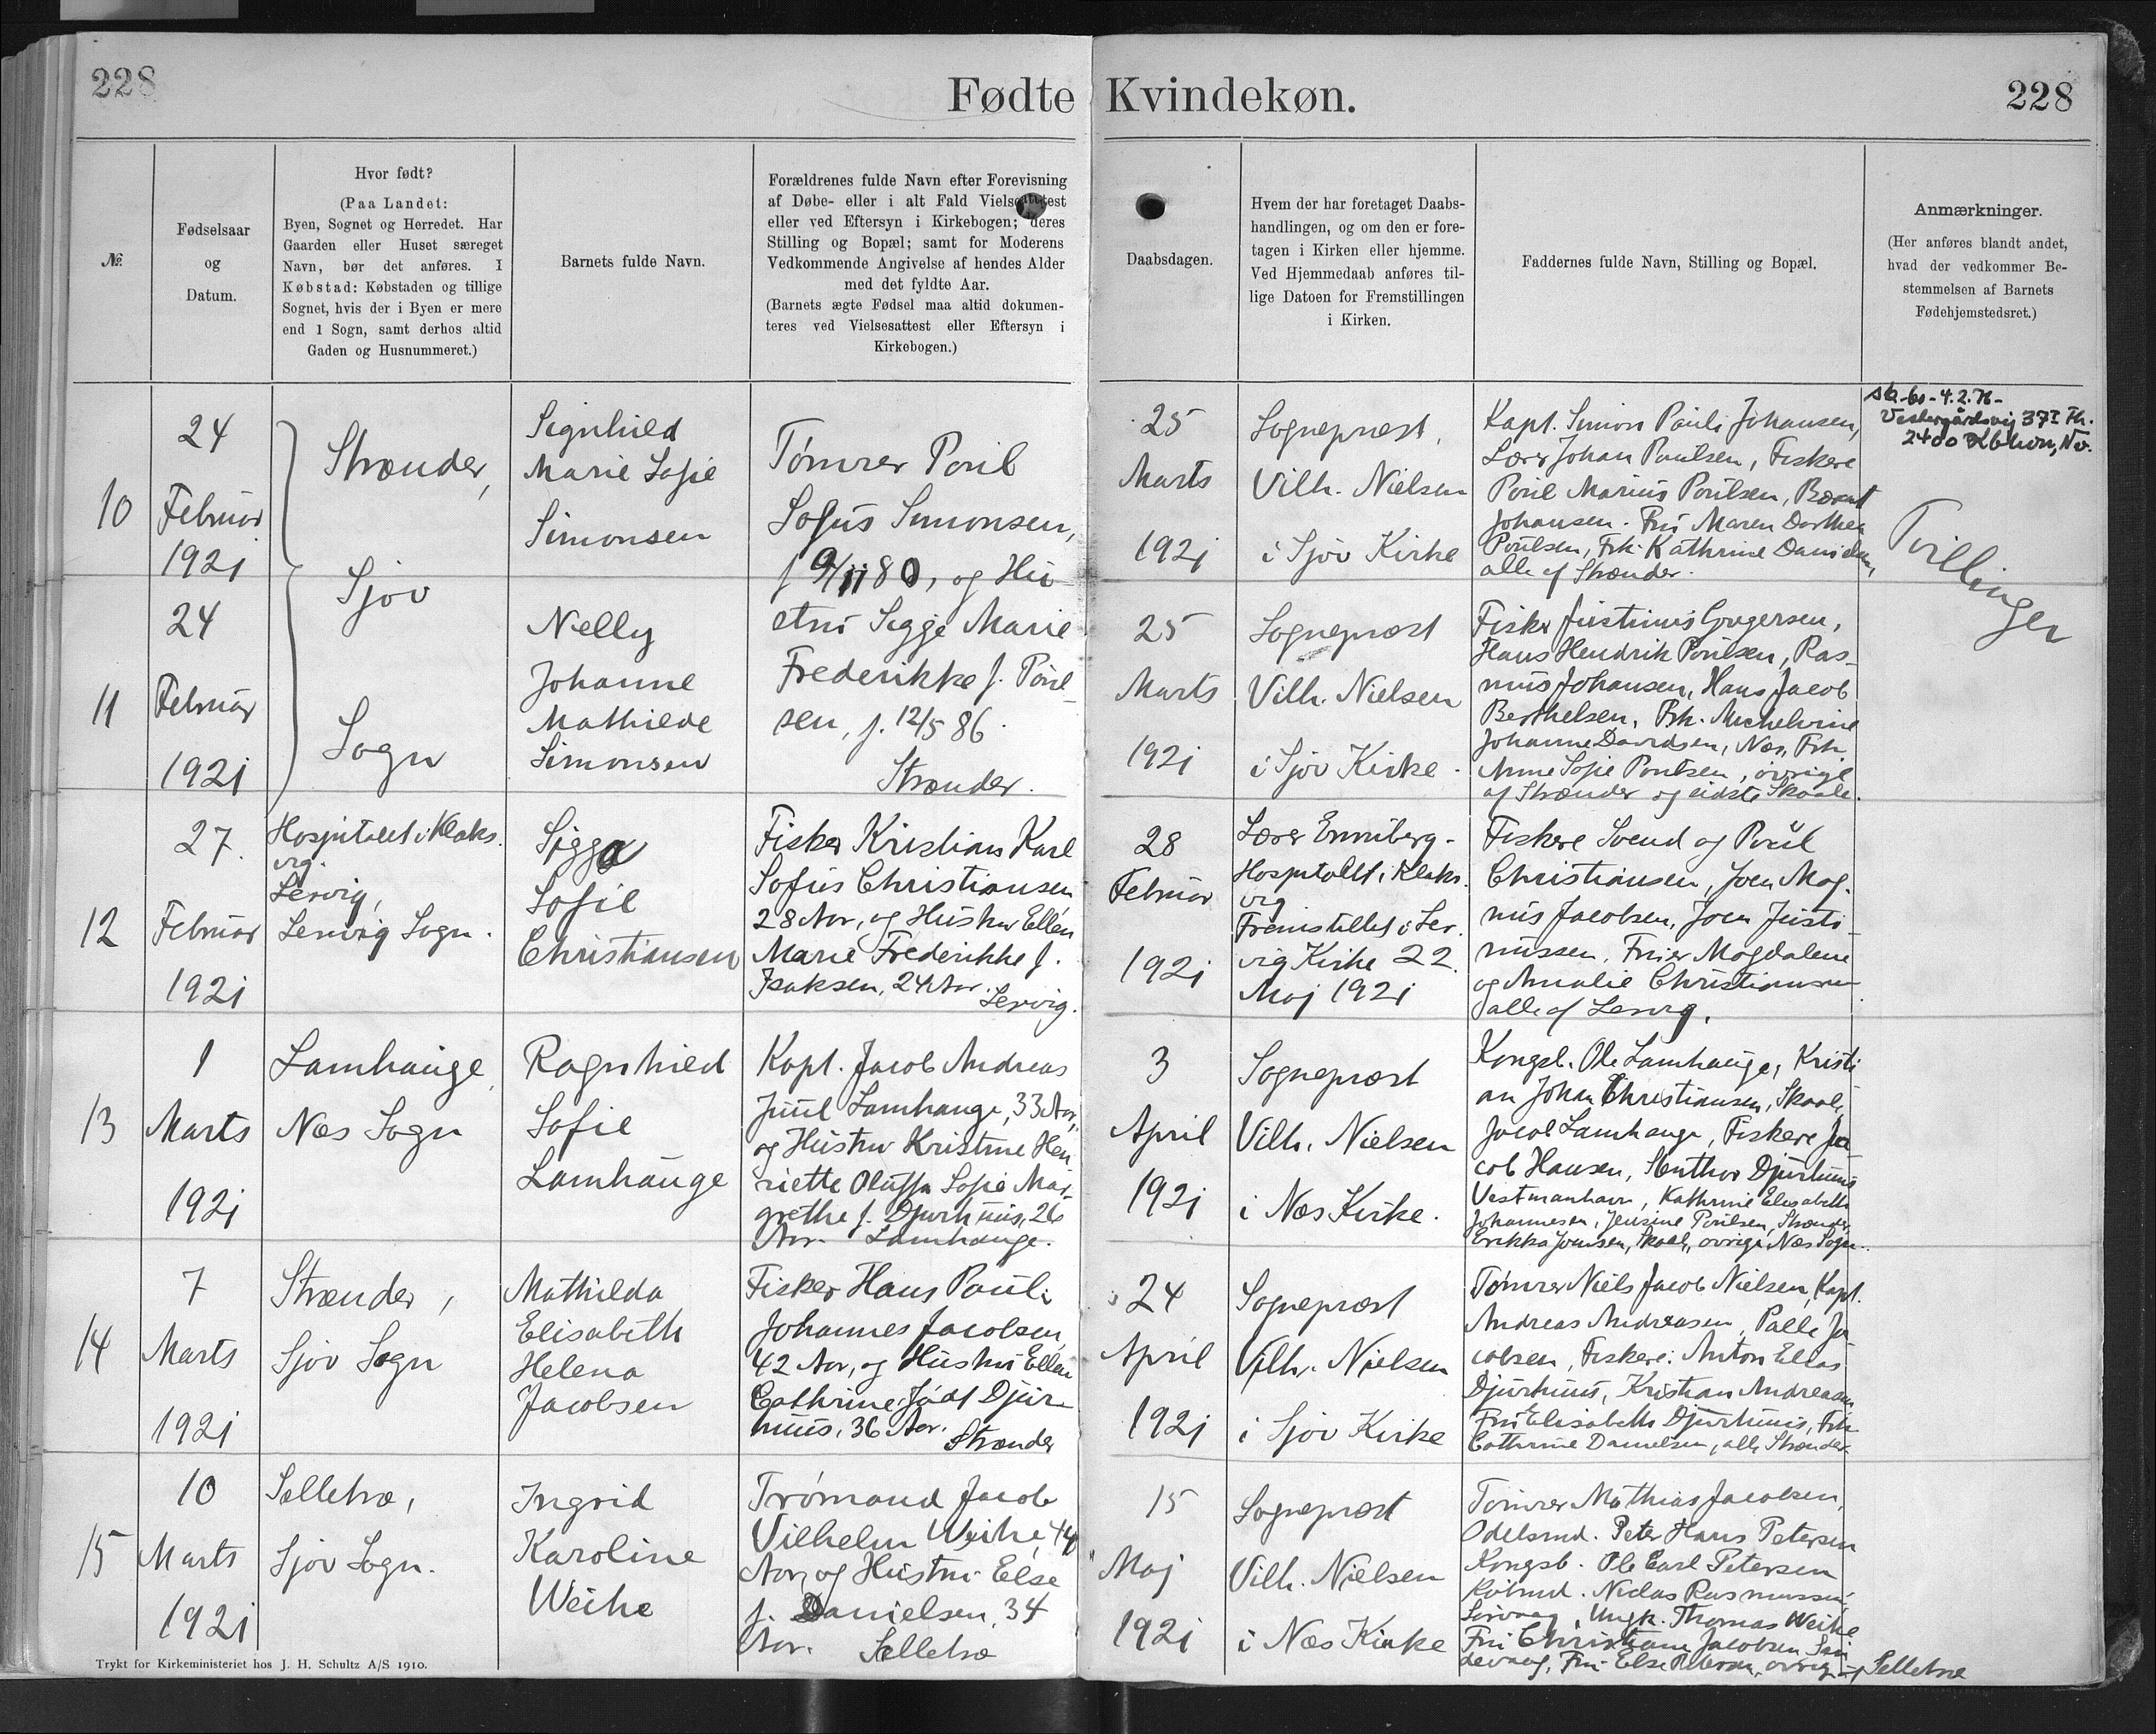 228
Fødte Kvindekøn.
228
№
Fødselsaar
og
Datum.
Hvor født?
(Paa Landet:
Byen, Sognet og Herredet. Har
Gaarden eller Huset særeget
Navn, bør det anføres. I
Købstad: Købstaden og tillige
Sognet, hvis der i Byen er mere
end 1 Sogn, samt derhos altid
Gaden og Husnummeret.)
Barnets fulde Navn.
Forældrenes fulde Navn efter Forevisning
af Døbe- eller i alt Fald Vielsesattest
eller ved Eftersyn i Kirkebogen; deres
Stilling og Bopæl; samt for Moderens
Vedkommende Angivelse af hendes Alder
med det fyldte Aar.
(Barnets ægte Fødsel maa altid dokumen-
teres ved Vielsesattest eller Eftersyn i
Kirkebogen.)
Daabsdagen.
Hvem der har foretaget Daabs-
handlingen, og om den er fore-
tagen i Kirken eller hjemme.
Ved Hjemmedaab anføres til-
lige Datoen for Fremstillingen
i Kirken.
Faddernes fulde Navn, Stilling og Bopæl.
Anmærkninger.
(Her anføres blandt andet,
hvad der vedkommer Be-
stemmelsen af Barnets
Fødehjemstedsret.)
10
24
Februar
1921
Strænder,
Sjov
Sogn
Signhild
Marie Sofie
Simonsen
Tømrer Poul
Sofus Simonsen,
f 9/11 80, og Hu
stru Sigge Marie
Frederikke f. Poul-
sen, f. 12/5 86.
Strænder.
25
Marts
1921
Sognepræst,
Vilh. Nielsen
i Sjov Kirke
Kapt. Simon Pauli Johansen,
Lærer Johan Poulsen, Fiskere
Poul Marius Poulsen, Berent
Johansen. Fru Maren Dorthea
Poulsen, Frk. Kathrine Danielsen,
alle af Strænder.
4.2.76-
Vestergårdsvej 37 I Th.
2400 Kbhvn, Nv.
Tvillinger
11
24
Februar
1921
Nelly
Johanne
Mathilde
Simonsen
25
Marts
1921
Sognepræst
Vilh. Nielsen
i Sjov Kirke.
Fisker Justinus Gregersen,
Hans Hendrik Poulsen, Ras-
mus Johansen, Hans Jacob
Berthelsen, Frk. Michelvine
Johanne Davidsen, Næs, Frk.
Anne Sofie Poulsen, øvrige
af Strænder og sidste Skaale.
12
27.
Februar
1921
Hospitalet i Klaks
vig.
Lervig,
Lervig Sogn.
Sigga
Sofie
Christiansen
Fisker Kristian Karl
Sofus Christiansen
28 Aar, og Hustru Ellen
Marie Frederikke f.
Isaksen, 24 Aar.
Lervig.
28
Februar
1921
Lærer Enniberg-
Hospitalet i Klaks.
vig
Fremstillet i Ler.
vig Kirke 22.
Maj 1921
Fiskere Svend og Poul
Christiansen, Joen Mag.
nus Jacobsen, Joen Justi-
nussen. Fruer Magdalene
og Amalie Christiansen
alle af Lervig.
13
1
Marts
1921
Lamhauge,
Næs Sogn
Ragnhild
Sofie
Lamhauge
Kapt. Jacob Andreas
Juul Lamhauge, 33 Aar,
og Hustru Kristine Hen
riette Oluffa Sofie Mar-
grethe f. Djurhuus, 26
Aar. Lamhauge.
3
April
1921
Sognepræst
Vilh. Nielsen
i Næs Kirke.
Kongsb. Ole Lamhauge, Kristi
an Johan Christiansen, Skaale,
Jacob Lamhauge, Fiskere Ja
cob Hansen, Djurhuus
Vestmanhavn, Kathrine Elisabeth
Johannesen, Jensine Poulsen, Strænder,
Erikka Joensen, Skaale, øvrige Næs Sogn.
14
7
Marts
1921
Strænder,
Sjov Sogn
Mathilda
Elisabeth
Helena
Jacobsen
Fisker Hans Pauli
Johannes Jacobsen,
42 Aar, og Hustru Ellen
Cathrine, født Djur-
huus, 36 Aar.
Strænder
24
April
1921
Sognepræst
Vilh. Nielsen
i Sjov Kirke
Tømrer Niels Jacob Nielsen, Kapt.
Andreas Andreasen, Palle Ja
cobsen, Fiskere: Anton Elias
Djurhuus, Kristian Andreasen
Fru Elisabeth Djurhuus, Frk
Cathrine Danielsen, alle Strænder.
15
10
Marts
1921
Selletræ,
Sjov Sogn.
Ingrid
Karoline
Weihe
Tromand Jacob
Vilhelm Weihe, 44
Aar, og Hustru Else
f. Danielsen, 34
Aar. Selletræ
15
Maj
1921
Sognepræst
Vilh. Nielsen
i Næs Kirke
Tømrer Mathias Jacobsen,
Odelsmd. Peter Hans Petersen
Kongsb. Ole Carl Petersen
Købmd. Niclas Rasmussen
Sørvaag, Ungk. Thomas Weihe
Fru Christiane Jacobsen, Sun
devaag, Fru Else Petersen, øvrige af Selletræ
Trykt for Kirkeministeriet hos J. H. Schultz A/S 1910.